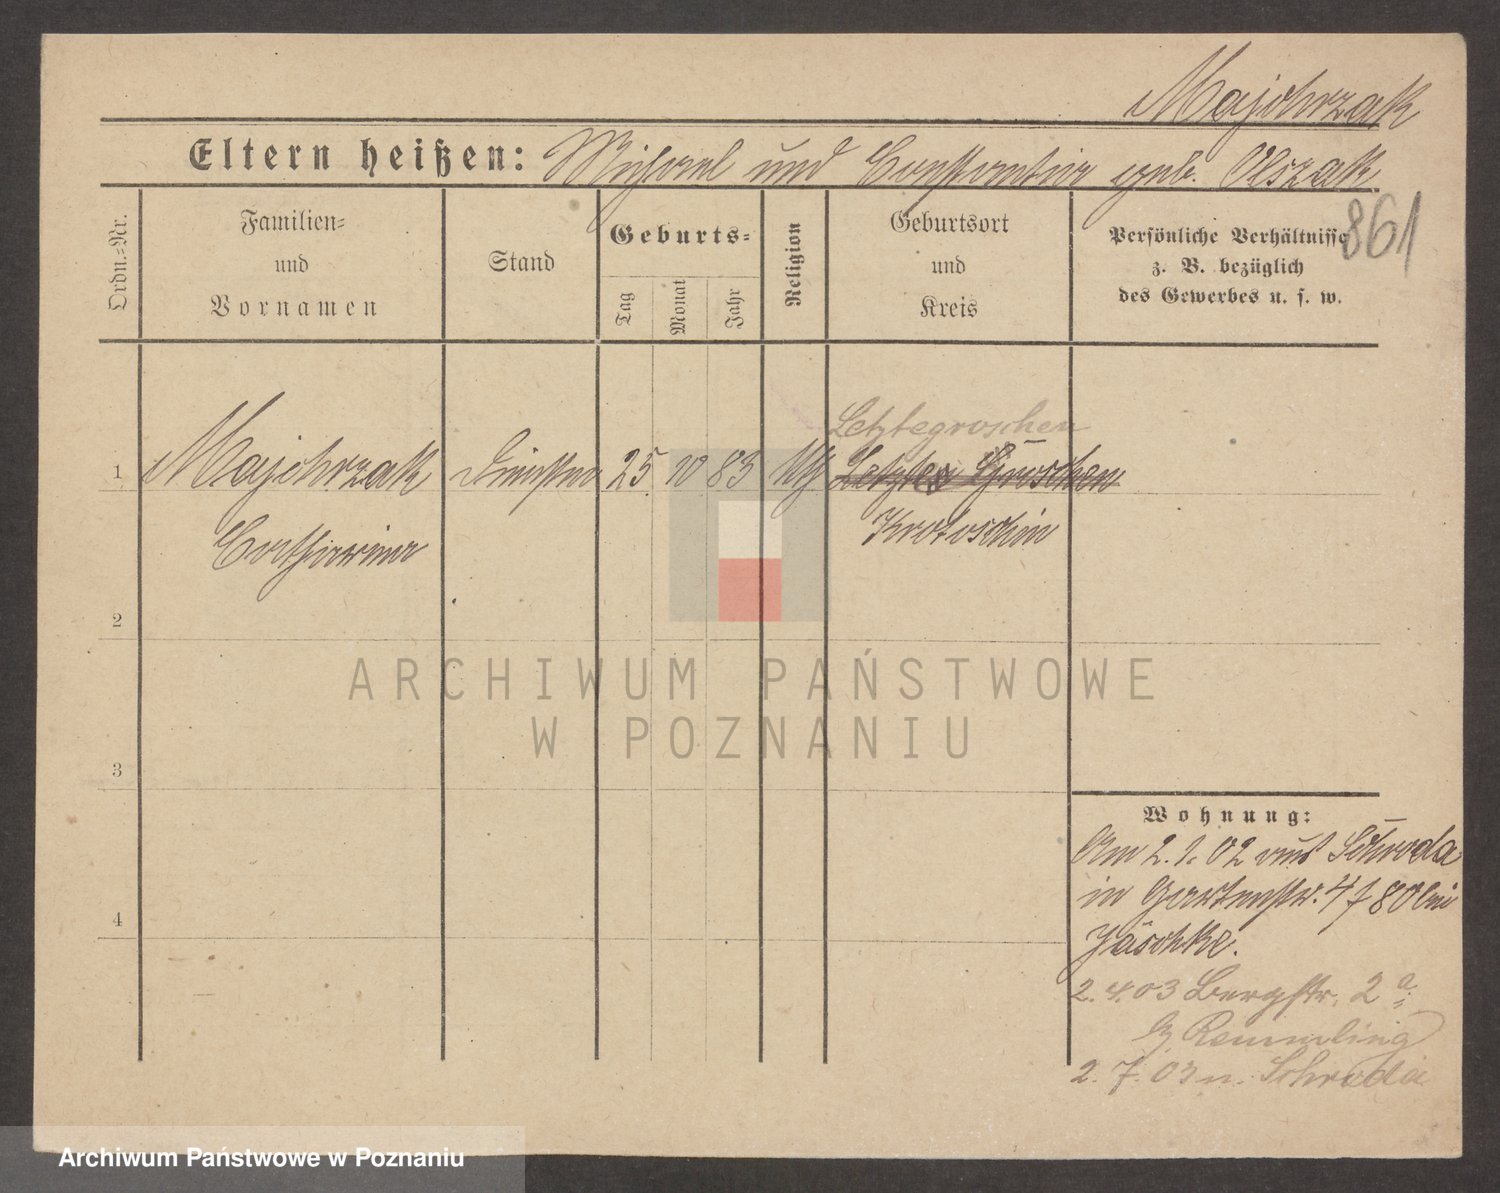 Majchrzak
Eltern heißen: Michael und Constantia geb. Olszak
861
Ordn.=Nr.
Familien=
und
Vornamen
Stand
Geburts=
Tag
Monat
Jahr
Religion
Geburtsort
und
Kreis
Persönliche Verhältnisse
z. B. bezüglich
des Gewerbes u. s. w.
Letztegroschen
1 Majchrzak 25 10 83 kth Letzter Groschen
Catharina Krotoschin
2
3
4
Wohnung:
Am 2.1.02 aus Schroda
in Gartenstr. 4 bei
Jäschke.
2.4.03 Bergstr. 2a
b. Remmling
2.7.03 n. Schroda
ARCHIWUM PAŃSTWOWE
W POZNANIU
Archiwum Państwowe w Poznaniu